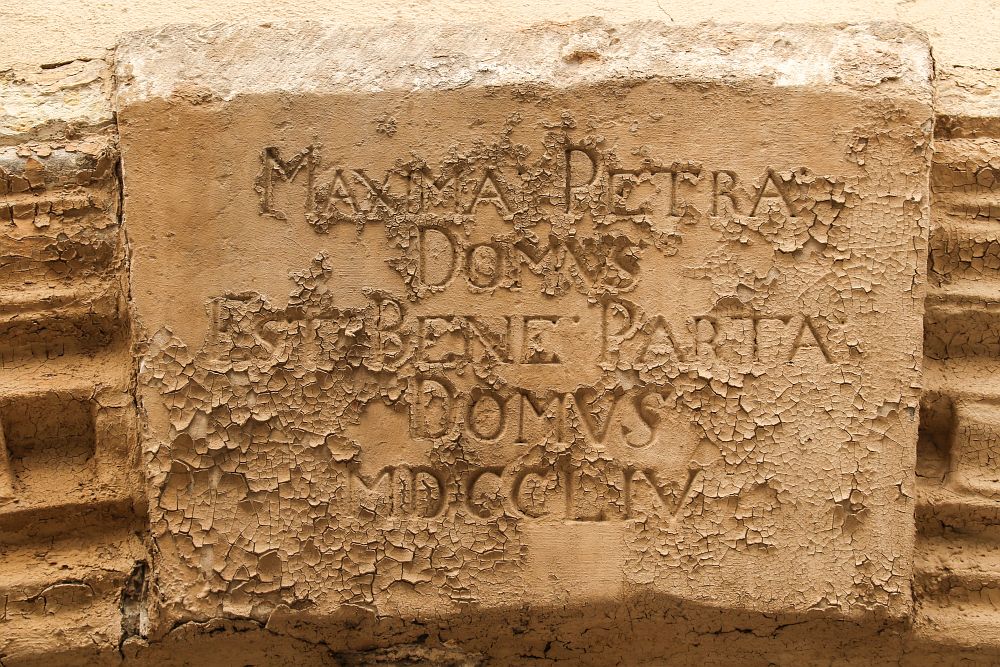 MAXMA PETRA
DOMVS
EST BENE PARTA
DOMVS
MDCCLIV